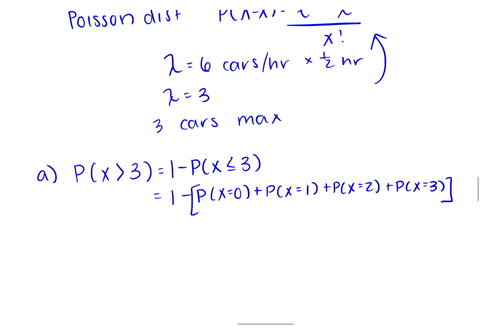 Poisson dist P(X=x)= e λ
x!
λ = 6 cars/hr × 1/2 hr
λ = 3
3 cars max
a) P(x > 3) = 1 - P(x ≤ 3)
= 1 - [P(x=0) + P(x=1) + P(x=2) + P(x=3)]